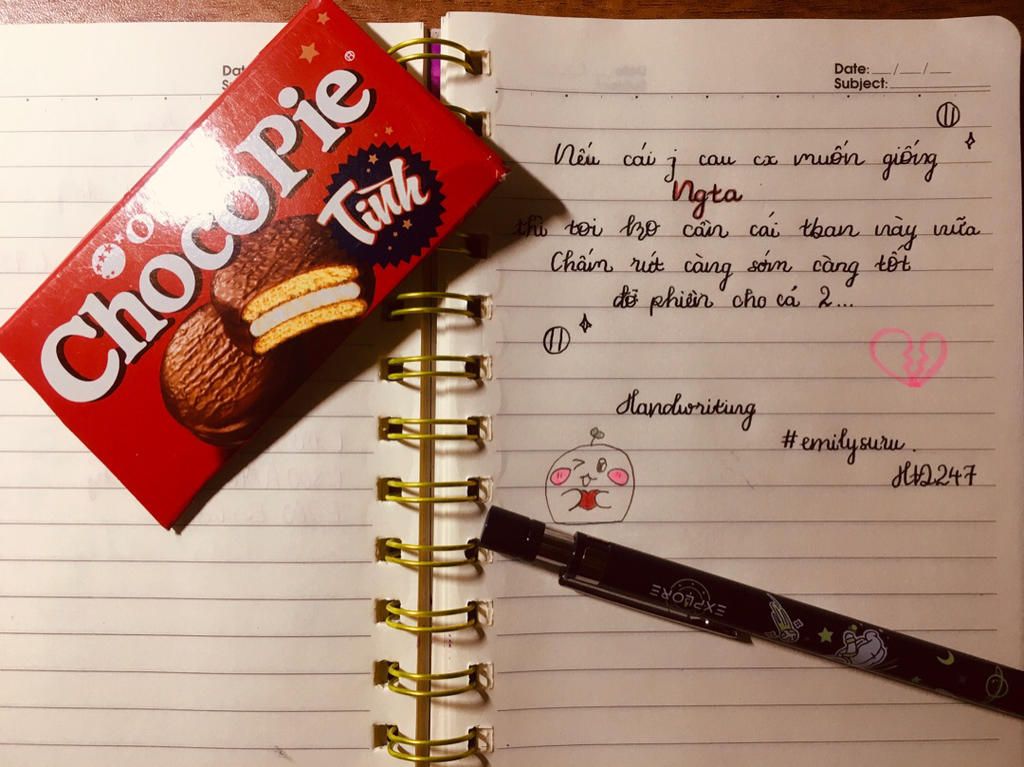 ChocoPie®
Tình
Dat
Su
Date: __/__/__
Subject:
Nếu cái j cau cx muốn giống
Ngta
thì toi ko cần cái thân này nữa
Chấm rứt càng sớm càng tốt
đỡ phiền cho cả 2...
Handwritung
#emilysuru.
HD247
EXPLORE